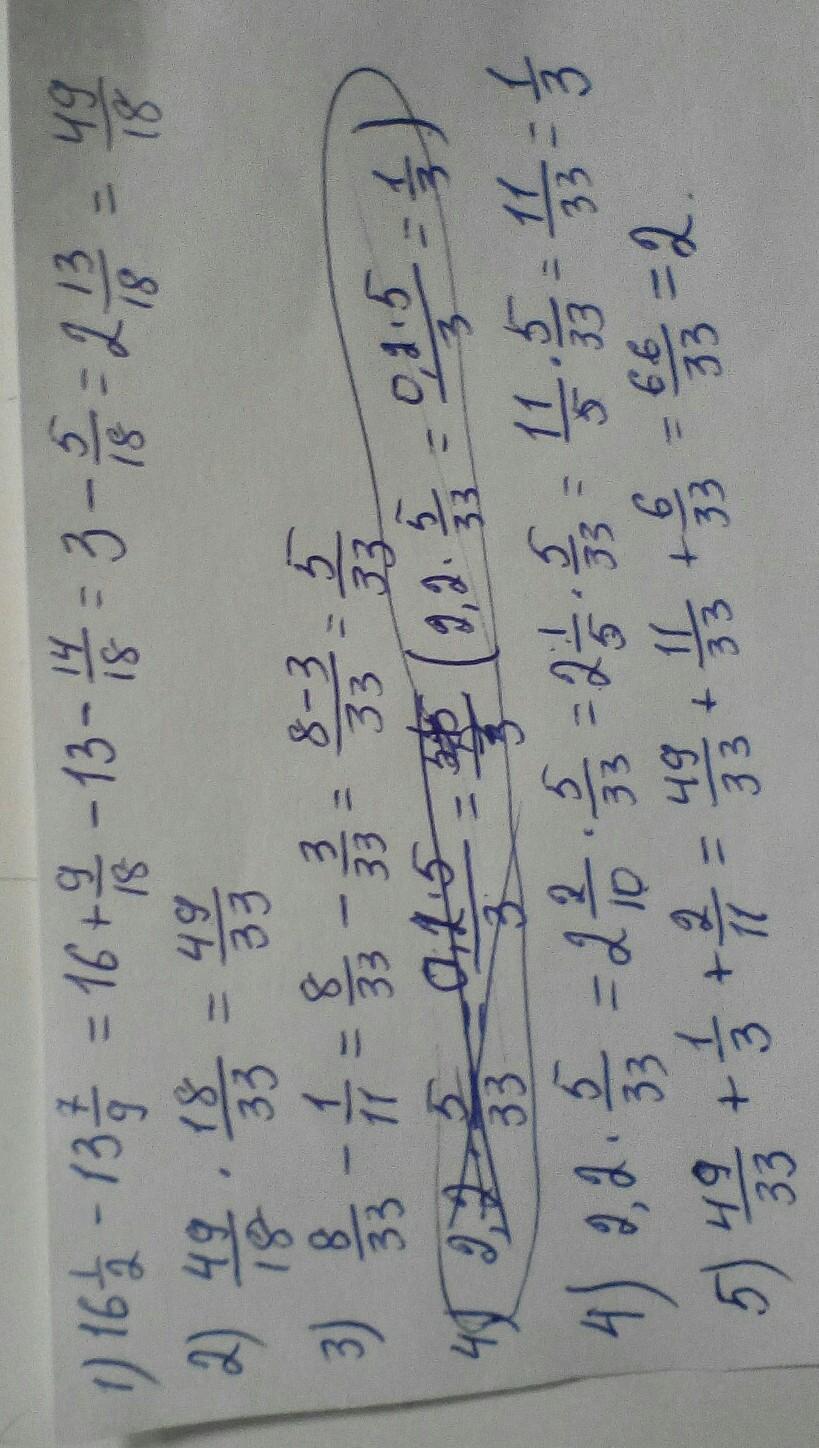 1) 16 1/2 - 13 7/9 = 16 + 9/18 - 13 - 14/18 = 3 - 5/18 = 2 13/18 = 49/18
2) 49/18 · 18/33 = 49/33
3) 8/33 - 1/11 = 8/33 - 3/33 = 8-3/33 = 5/33
4) 2,2 · 5/33 = 0,2·5/3 = (2,2 · 5/33 = 0,2·5/3 = 1/3)
4) 2,2 · 5/33 = 2 2/10 · 5/33 = 2 1/5 · 5/33 = 11/5 · 5/33 = 11/33 = 1/3
5) 49/33 + 1/3 + 2/11 = 49/33 + 11/33 + 6/33 = 66/33 = 2.